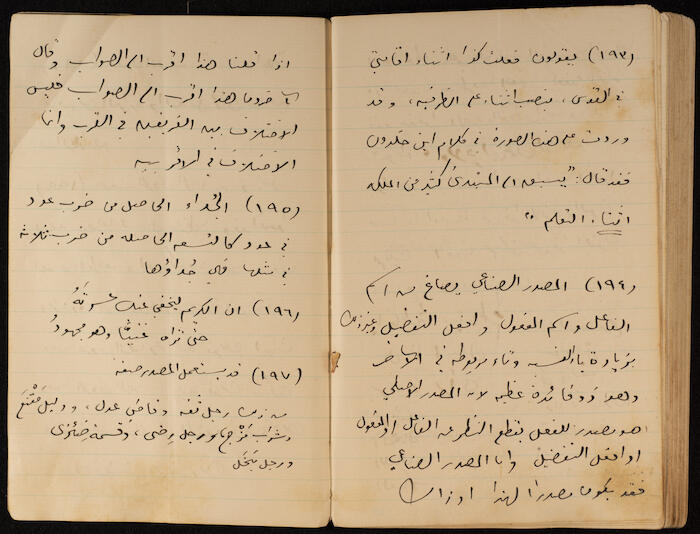 (١٩٣) يقولون فعلت كذا اثناء اقامتي
في القدس، بنصب اثناء على الظرفية، وقد
وردت على هذه الصورة في كلام ابن خلدون
فقد قال: "يسبق الى المبتدئ كثير من الملكة
اثناء التعلم"
(١٩٤) المصدر الصناعي يصاغ من اسم
الفاعل واسم المفعول وافعل التفضيل وغير ذلك
بزيادة ياء النسبة وتاء مربوطة في الآخر
وهو ذو فائدة عظيمة لان المصدر الاصلي
هو مصدر للفعل بقطع النظر عن الفاعل او المفعول
او افعل التفضيل واما المصدر الصناعي
فقد يكون مصدرا لهذا او ذاك
اذا قلنا هذا اقرب الى الصواب وقال
هذا اقرب الى الصواب فليس
الاختلاف بين الفريقين في القرب وانما
الاختلاف في الاقربية
(١٩٥) الجُداء الحاصل من ضرب عدد
في عدد كالتسعة الحاصلة من ضرب ثلاثة
في مثلها فهي جُداؤها
(١٩٦) ان الكريم ليخفي عنك عسرتَهُ
حتى تراه غنيًّا وهو مجهودُ
(١٩٧) قد يستعمل المصدر صفة
من ذلك رجل ثقة وقاضٍ عدل، ودليل مَقْنَع
وشراب مزاج ورجل رضى، وقسمة ضِئزى
ورجل